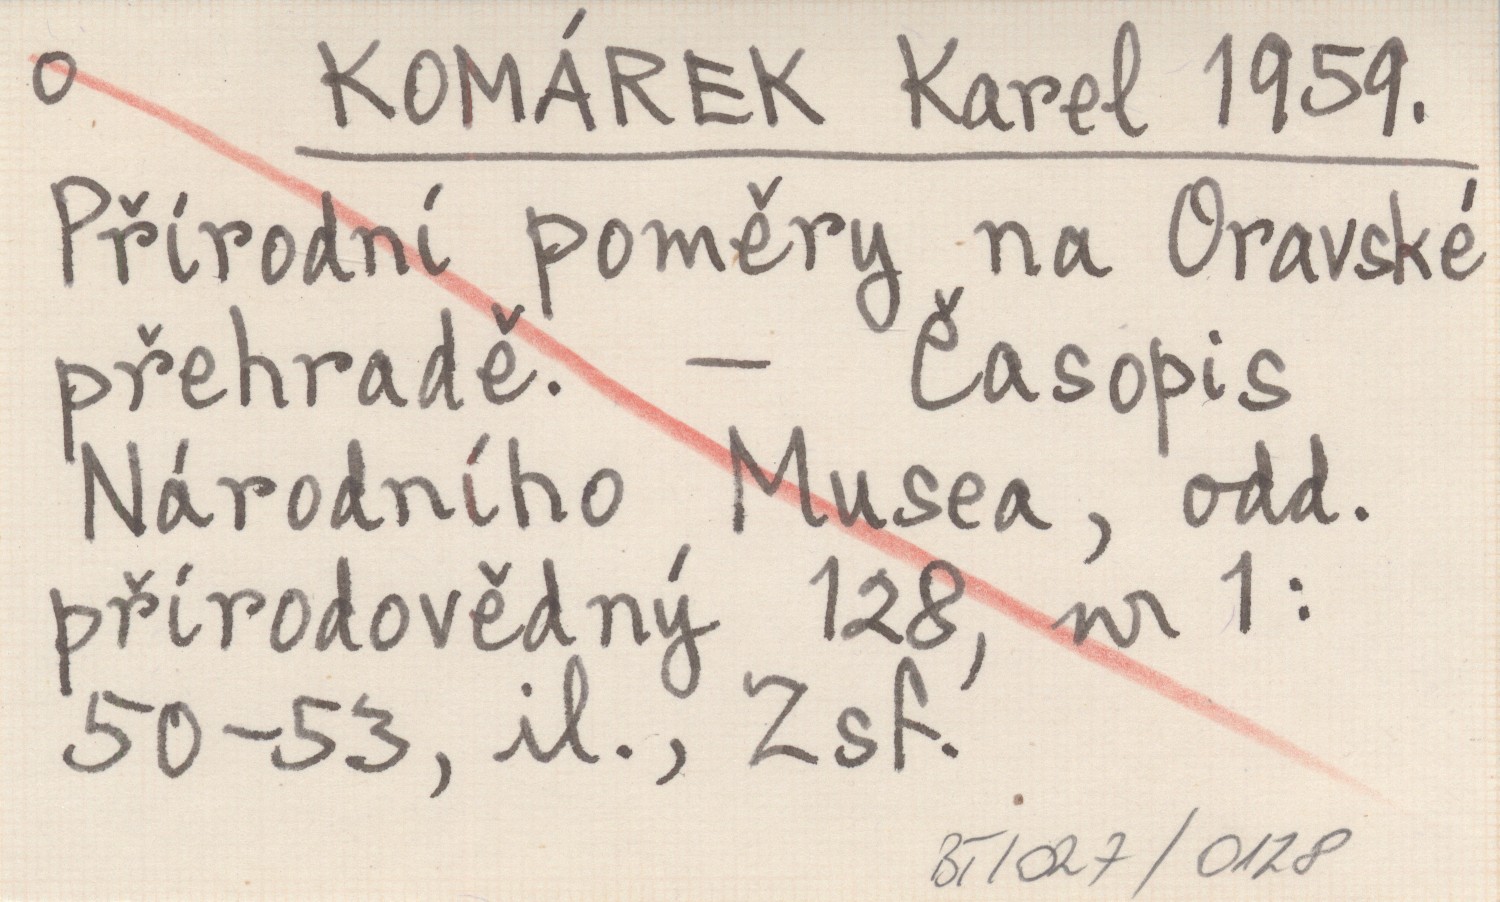 o KOMÁREK Karel 1959.
Přírodní poměry na Oravské
přehradě. — Časopis
Národního Musea, odd.
přírodovědný 128, nr 1:
50-53, il., Zsf.
BT/027/0128